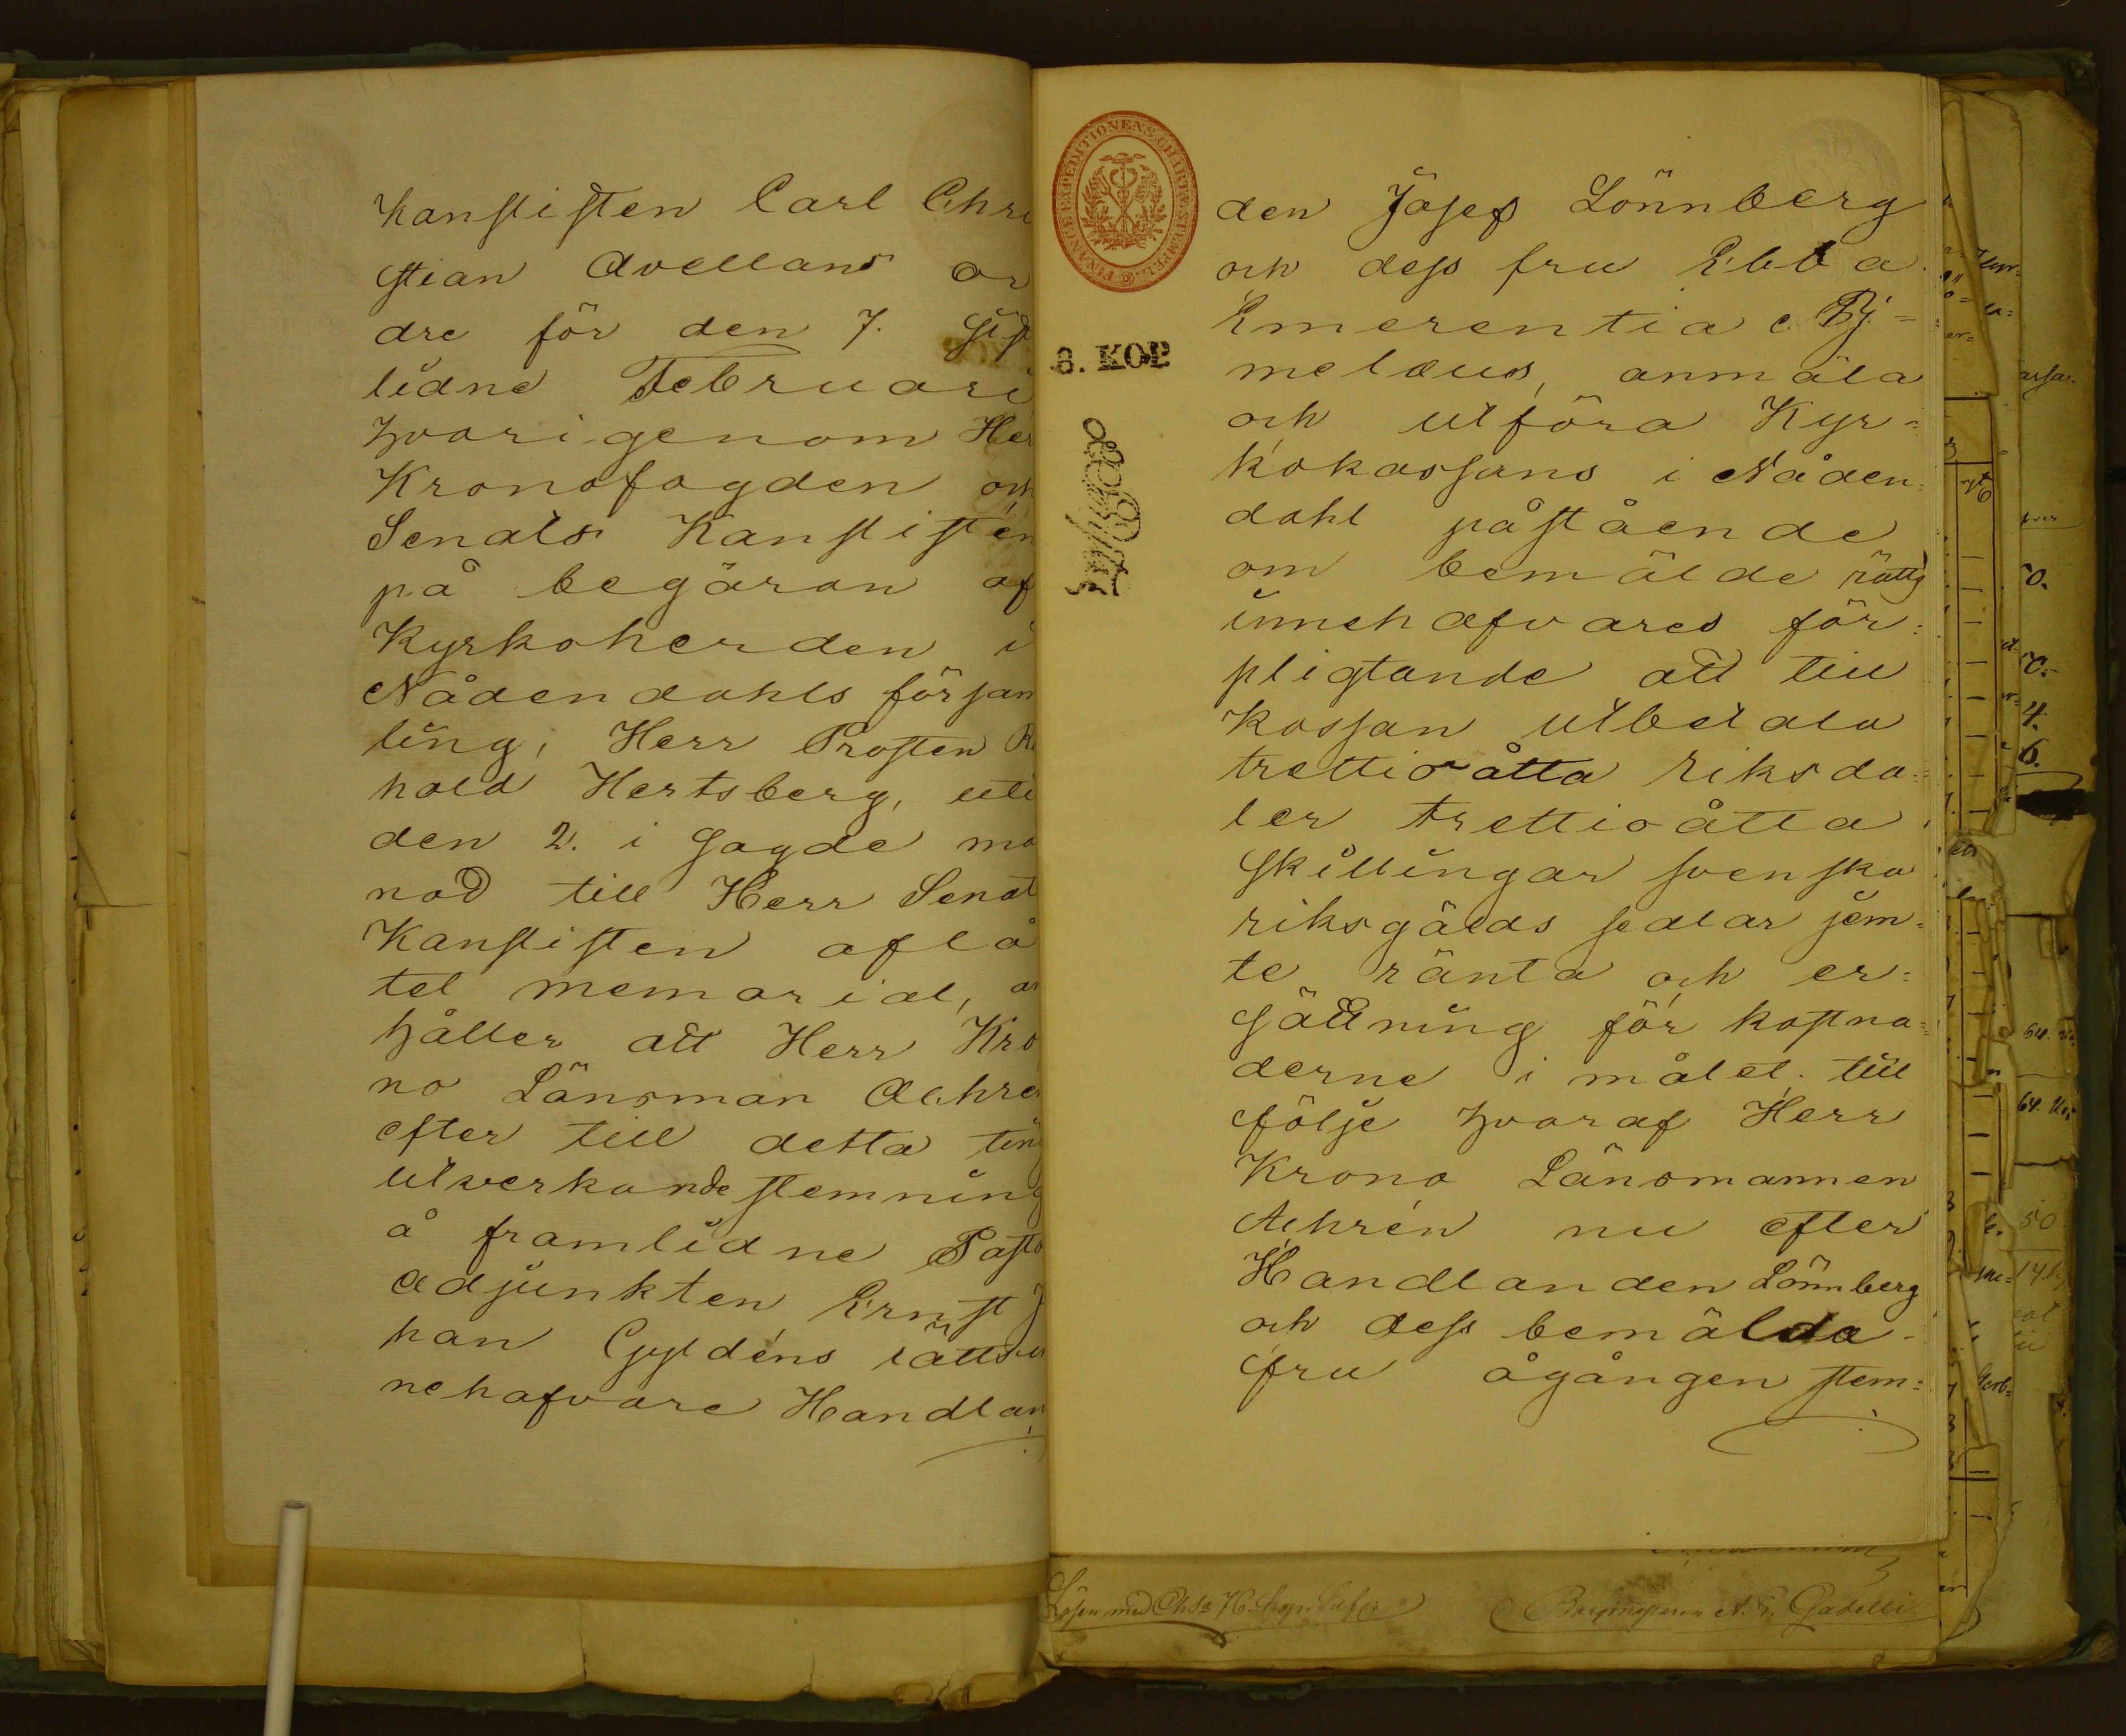 Kanslisten Carl Chri
stian Avellans or
dre för den 7. sist
lidne Februari
hvarigenom Her
Kronofogden och
Senats Kanslisten
på begäran af
Kyrkoherden i
Nådendahls försam
ling, Herr Prosten
hold Hertsberg, uti
den 2. i sagde må
nad till Herr Senat
Kanslisten aflå
tet memorial, an
håller att Herr Kro
no Länsman Achrén
efter till detta ting
utverkande stemning
å framlidne Pasto
adjunkten Ernst J
han Gyldéns rättsin
nehafvare Handlan
FINANCE EXPEDITIONENS CHARTÆ STEMPEL
8. KOP.
den Josef Lönnberg
och dess fru Ebba
Emerentia Bj=
melæus, anmäla
och utföra Kyr=
kokassans i Nåden=
dahl påstående
om bemälde rätts
innehafvares för=
pligtande att till
Kassan utbetala
trettioåtta riksda=
ler trettioåtta
skillingar svenska
riksgälds sedlar jem=
te ränta och er=
sättning för kostna=
derne i målet; till
följe hvaraf Herr
Krono Länsmannen
Achrén nu efter
Handlanden Lönnberg
och dess bemälda
fru ågången stem=
Lösen med